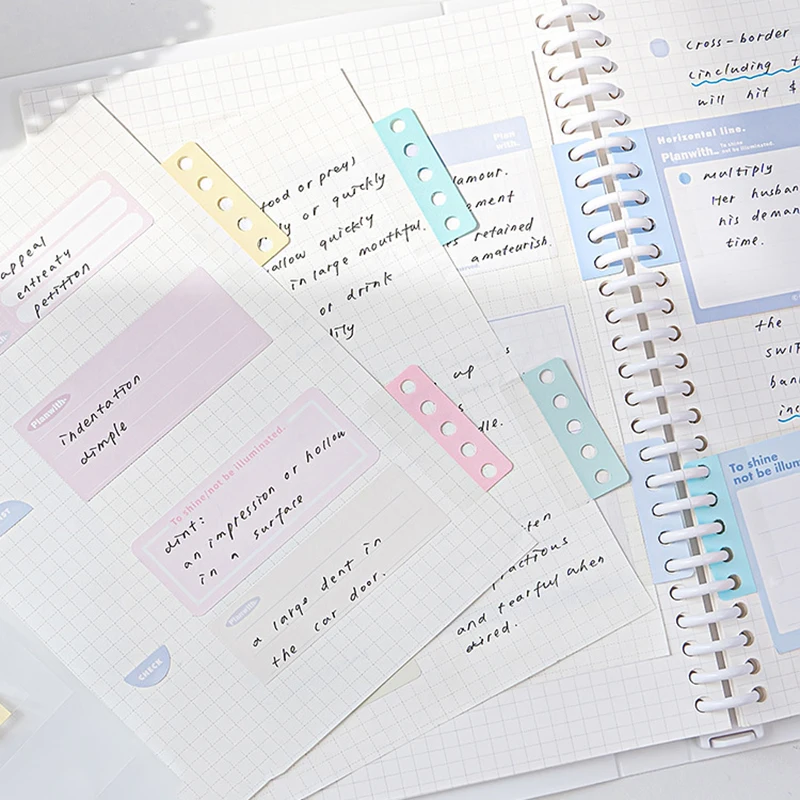 appeal
entreaty
petition
Planwith
indentation
dimple
To shine/not be illuminated.
dint:
an impression or hollow
in a surface
Planwith
a large dent in
the car door.
CHECK
food or preys
or quickly
quickly
in large mouthful.
or drink
and tearful when
Plan
with.
retained
amateurish.
up
cross-border
(including
will hit $
Horizontal line.
Planwith
To shine
not be illuminated.
multiply
Her husban
his deman
time.
the
To shine
not be illum